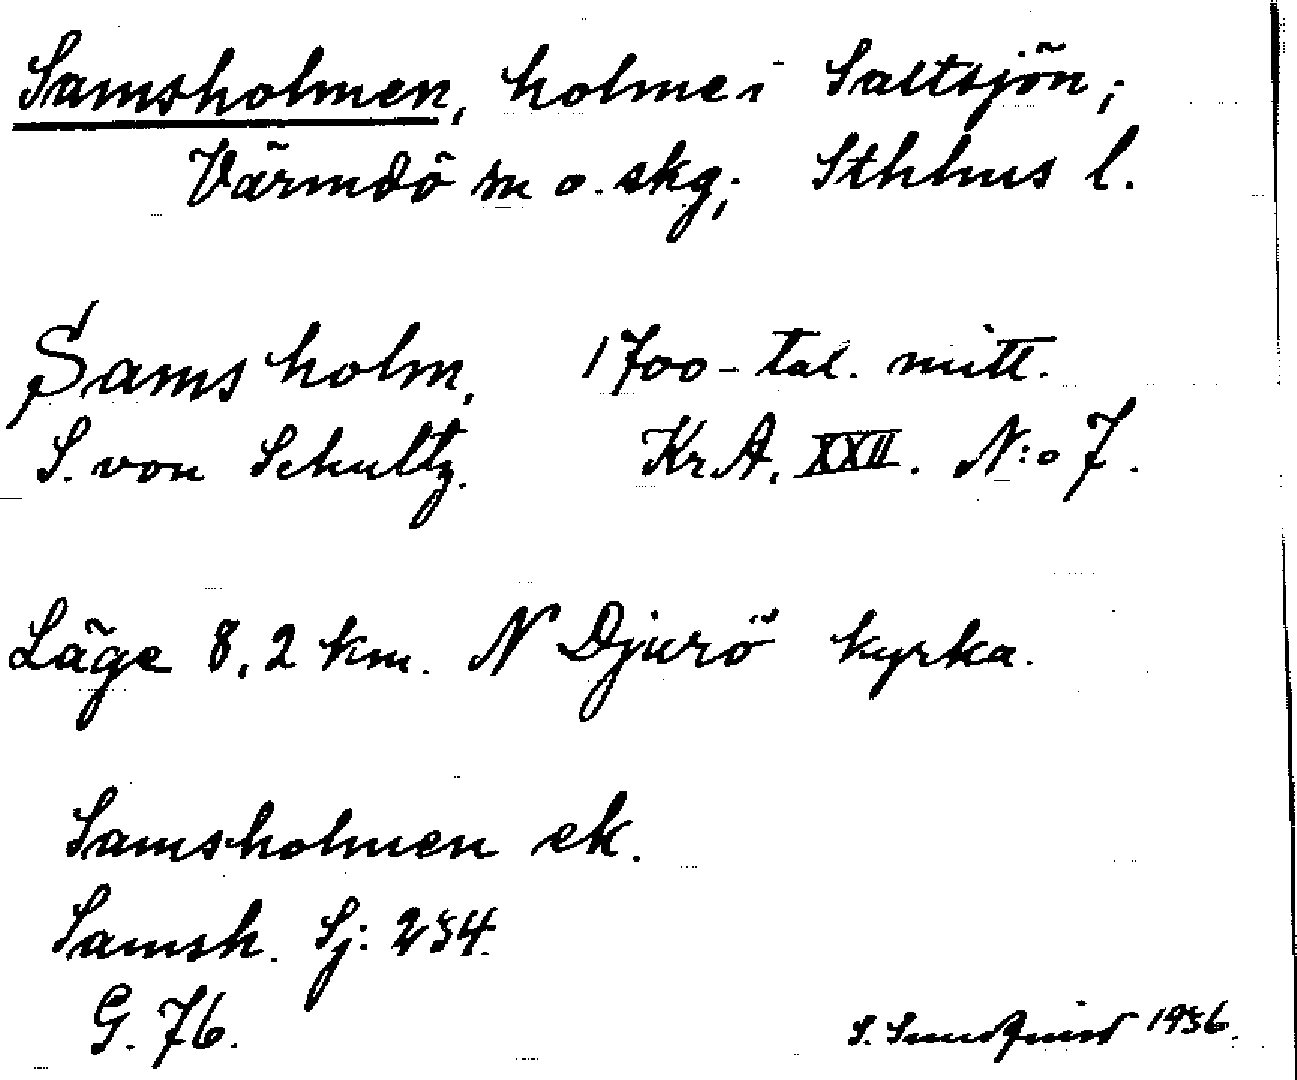 Samsholmen, holme i Saltsjön;
Värmdö sn o. skg; Sthlms l.
Samsholm, 1700-tal. mitt.
S. von Schultz. Kr A. XXII. N:o 7.
Läge 8,2 km. N Djurö kyrka.
Samsholmen ek.
Samsh. Sj: 254.
G. 76.
S. Sundquist 1936.